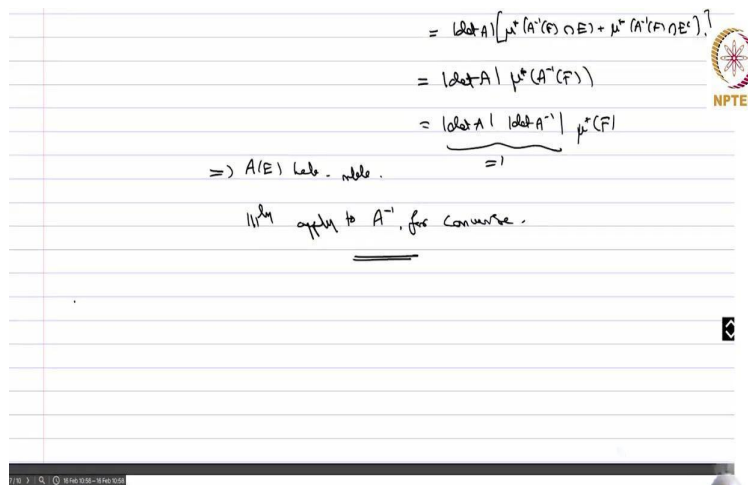 = |det A| [μ*(A⁻¹(F) ∩ E) + μ*(A⁻¹(F) ∩ Eᶜ)]
= |det A| μ*(A⁻¹(F))
NPTE
= |det A| |det A⁻¹| μ*(F)
=1
=) A(E) Leb. mble.
|||ly apply to A⁻¹, for converse.
7/10 16 Feb 10:56 - 16 Feb 10:58